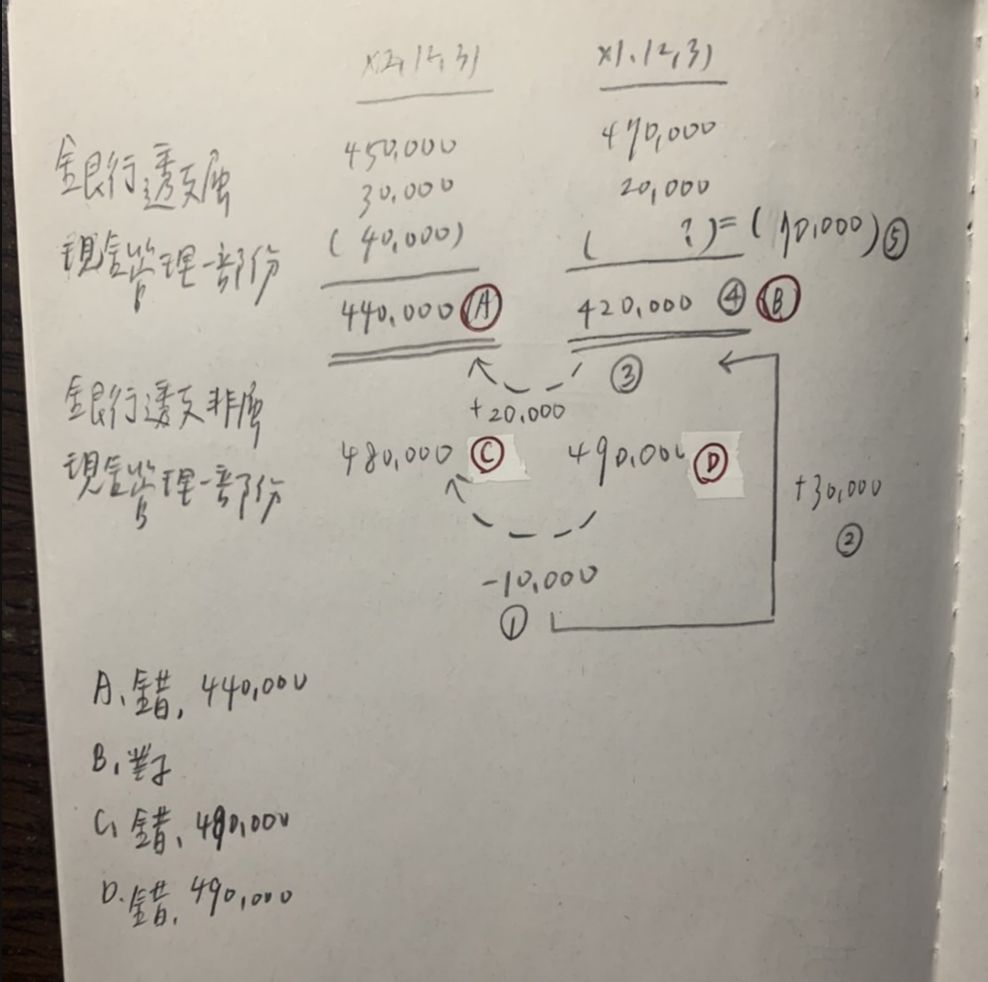 X2,12,31 X1,12,31
銀行透支屬 450,000 470,000
30,000 20,000
現金管理一部份 (40,000) ( ?)=(70,000)⑤
440,000 Ⓐ 420,000 ④ Ⓑ
③
銀行透支非屬 +20,000
現金管理一部份 480,000 Ⓒ 490,000 Ⓓ
+30,000
②
-10,000
①
A、錯, 440,000
B、對
C、錯、480,000
D、錯、490,000